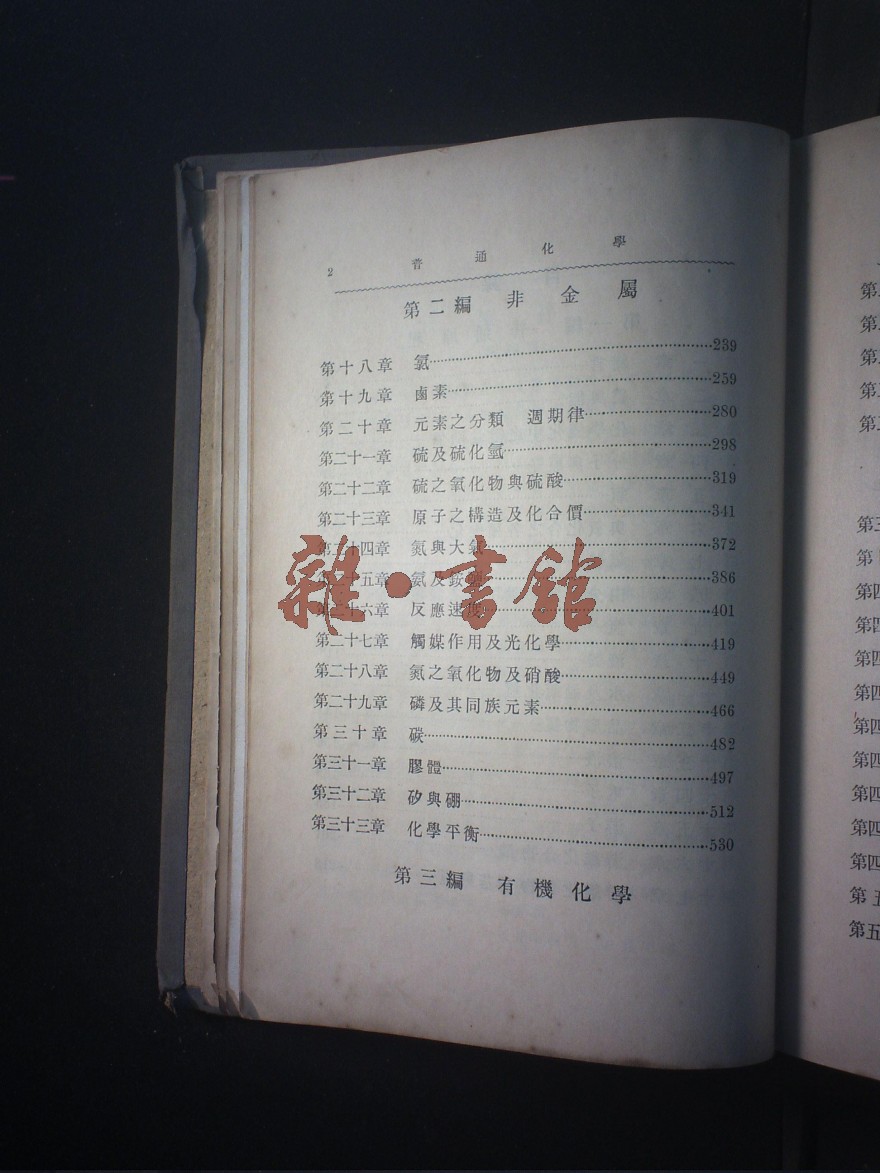 2 普通化學
第二編 非金屬
第十八章 氯 239
第十九章 鹵素 259
第二十章 元素之分類 週期律 280
第二十一章 硫及硫化氫 298
第二十二章 硫之氧化物與硫酸 319
第二十三章 原子之構造及化合價 341
第二十四章 氮與大氣 372
第二十五章 氨及銨 386
第二十六章 反應速度 401
第二十七章 觸媒作用及光化學 419
第二十八章 氮之氧化物及硝酸 449
第二十九章 磷及其同族元素 466
第三十章 碳 482
第三十一章 膠體 497
第三十二章 矽與硼 512
第三十三章 化學平衡 530
第三編 有機化學
雜·書館